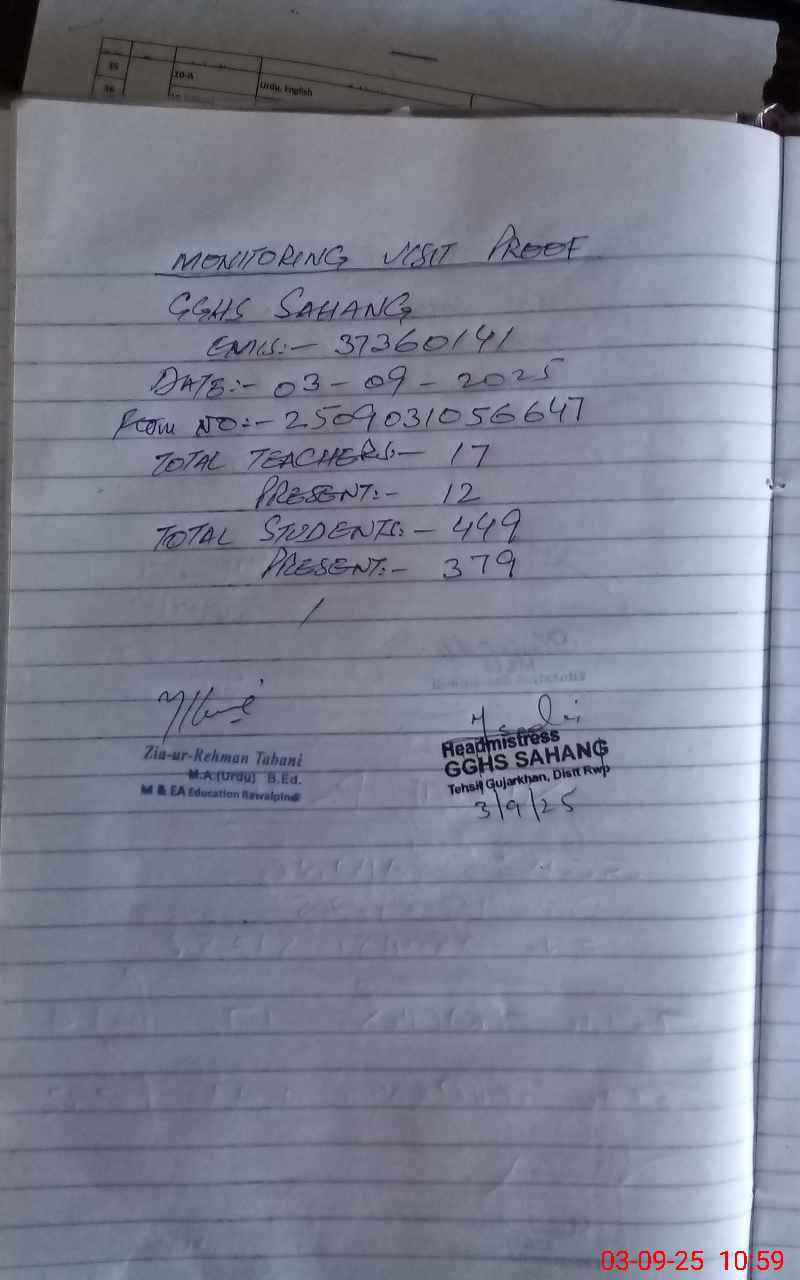 35
10-A
Urdu, English
36
MONITORING VISIT PROOF
GGHS SAHANG
EMIS:- 37360141
DATE:- 03-09-2025
FROM NO:- 2509031056647
TOTAL TEACHERS:- 17
PRESENT:- 12
TOTAL STUDENTS:- 449
PRESENT:- 379
Zia-ur-Rehman Tabani
M.A.(Urdu) B.Ed.
M & EA Education Rawalpindi
Headmistress
GGHS SAHANG
Tehsil Gujarkhan, Distt Rwp
3/9/25
03-09-25 10:59